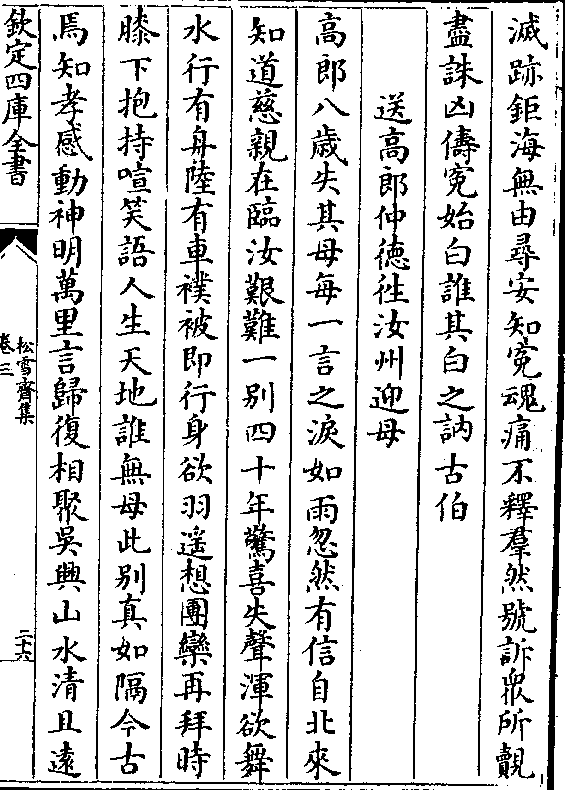 滅跡鉅海無由尋安知寃魂痛不釋羣然號訴衆所覿
盡誅凶儔寃始白誰其白之訥古伯
送高郎仲徳徃汝州迎母
高郎八歲失其母每一言之淚如雨忽然有信自北來
知道慈親在臨汝艱難一别四十年驚喜失聲渾欲舞
水行有舟陸有車襆被即行身欲羽遥想團欒再拜時
膝下抱持喧笑語人生天地誰無母此别真如隔今古
焉知孝感動神明萬里言歸復相聚吳興山水清且逺
欽定四庫全書
松雪齋集
卷三
二十六